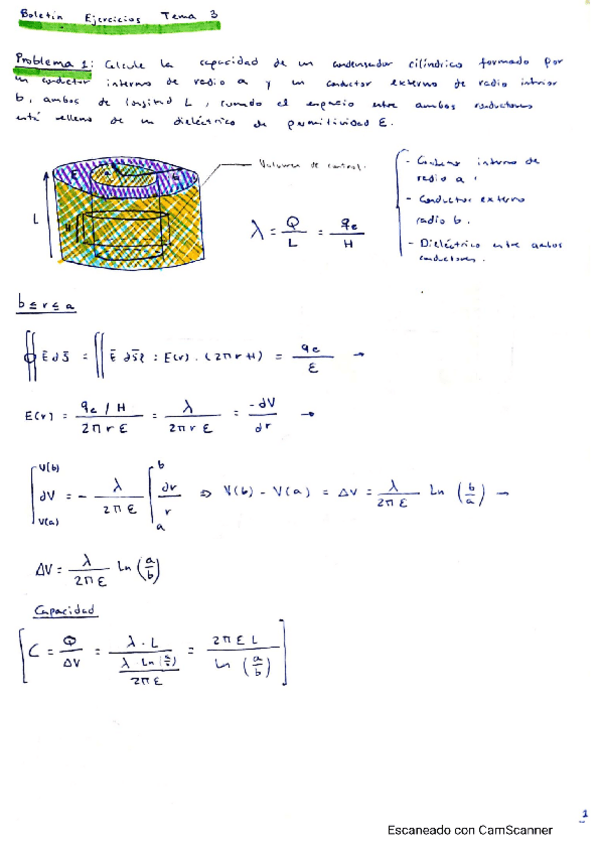 Boletín Ejercicios Tema 3
Problema 1: Calcule la capacidad de un condensador cilíndrico formado por
un conductor interno de radio a y un conductor externo de radio interior
b, ambos de longitud L, cuando el espacio entre ambos conductores
está relleno de un dieléctrico de permitividad ε.
Volumen de control.
L
H
ε
a
b
λ = Q/L = qe/H
- Conductor interno de
radio a.
- Conductor externo
radio b.
- Dieléctrico entre ambos
conductores.
b ≤ r ≤ a
∯ Ē d s̄ = ∬ Ē d s̄ : E(r) · (2π r H) = qe/ε →
E(r) = (qe / H)/(2π r ε) = λ/(2π r ε) = -dV/dr →
∫_{V(a)}^{V(b)} dV = - λ/(2π ε) ∫_a^b dr/r ⇒ V(b) - V(a) = ΔV = λ/(2π ε) Ln (b/a) →
ΔV = λ/(2π ε) Ln (a/b)
Capacidad
[C = Q/ΔV = (λ · L)/((λ Ln (a/b))/(2π ε)) = (2π ε L)/(Ln (a/b))]
1
Escaneado con CamScanner